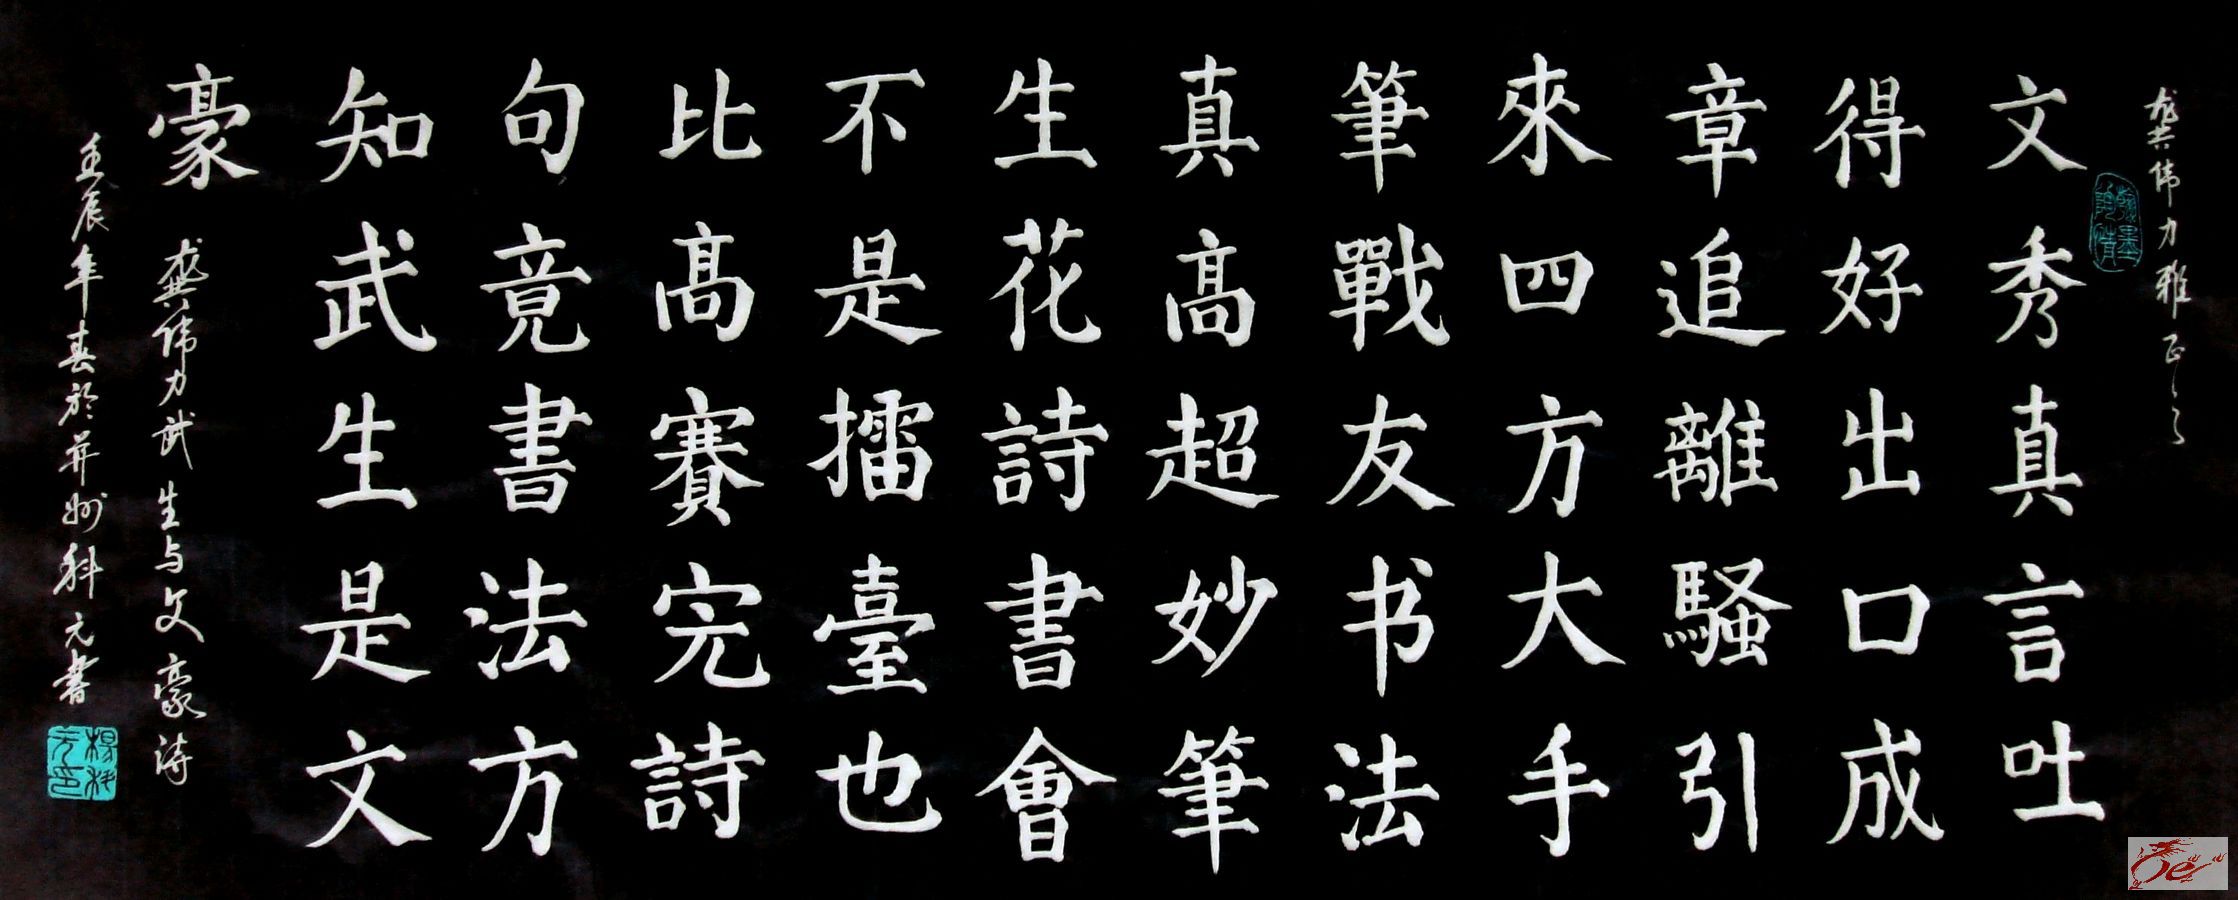 龚伟力雅正之
翰墨陶情
文秀真言吐
得好出口成
章追離騷引
來四方大手
筆戰友书法
真高超妙筆
生花詩書會
不是擂臺也
比高賽完詩
句竟書法方
知武生是文
豪
龚偉力武生与文豪诗
壬辰年春於并州科元書
楊科元印